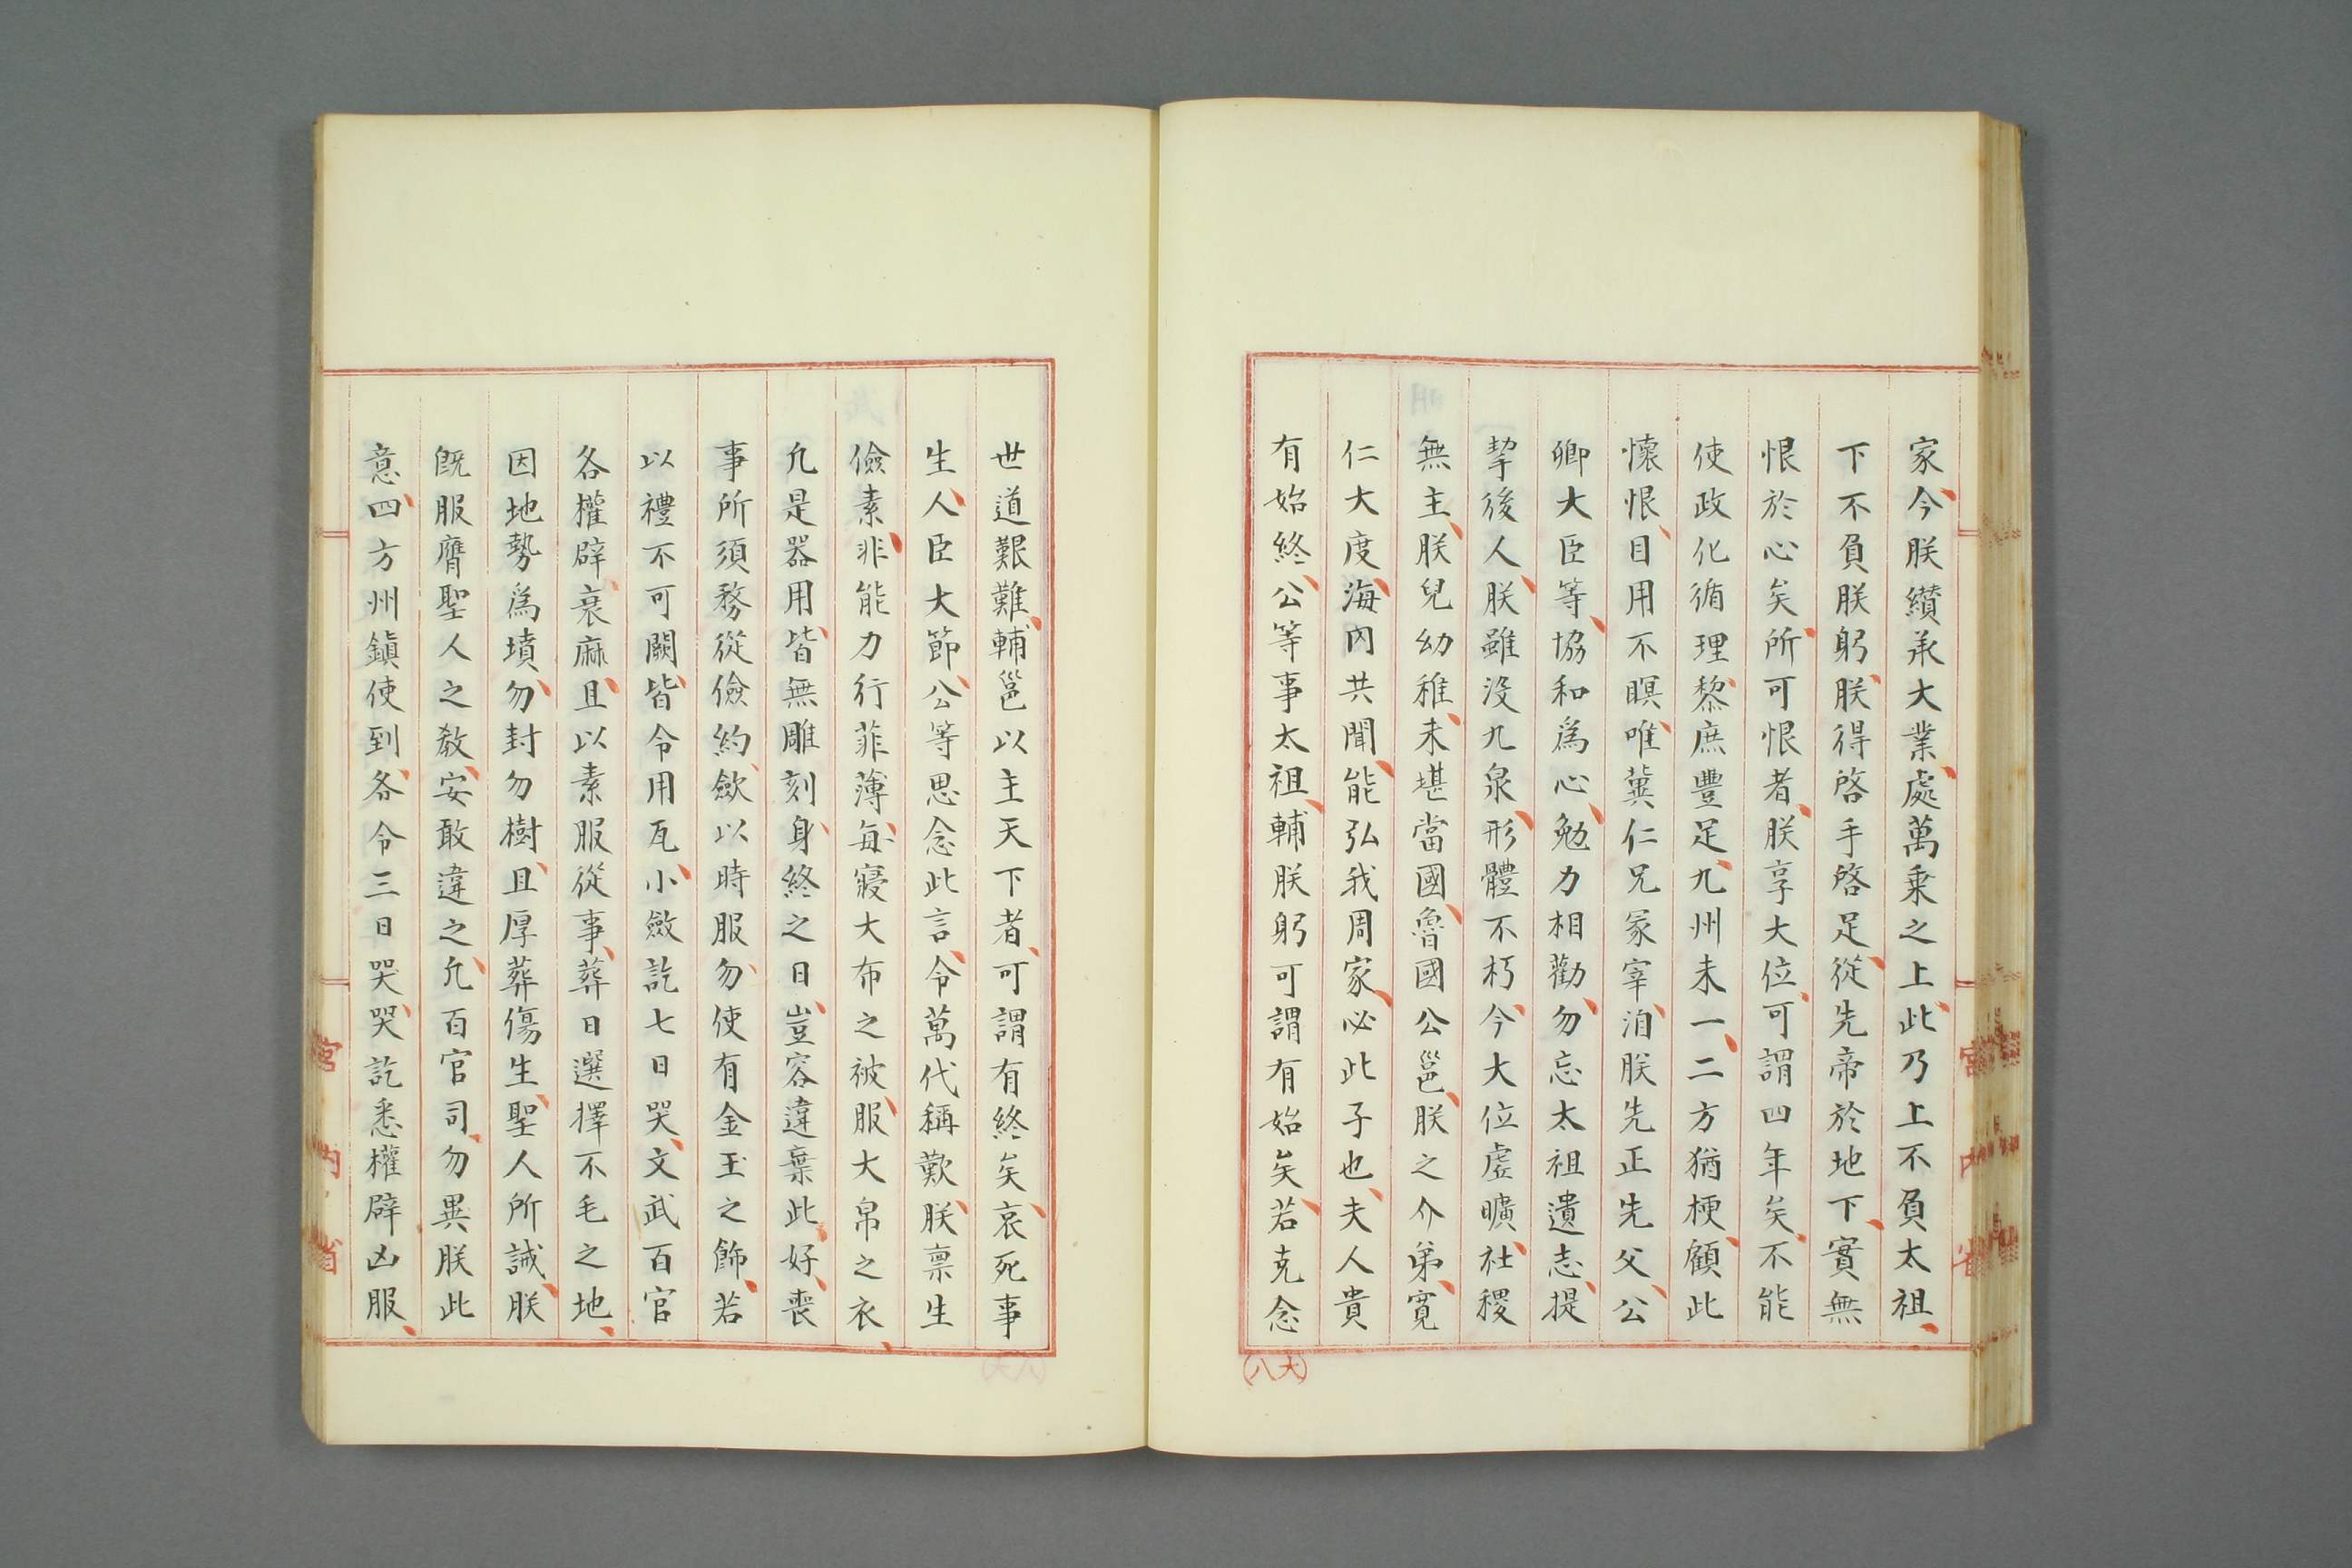 家今朕纉承大業處萬乗之上此乃上不負太祖
下不負朕躬朕得啓手啓足從先帝於地下實無
恨於心矣所可恨者朕享大位可謂四年矣不能
使政化循理黎庶豐足九州未一二方猶梗顧此
懷恨目用不瞑唯冀仁兄冢宰洎朕先正先父公
卿大臣等協和爲心勉力相勸勿忘太祖遺志提
挈後人朕雖没九泉形體不朽今大位虛曠社稷
無主朕兒幼稚未堪當國魯國公邕朕之介弟寛
仁大度海內共聞能弘我周家必此子也夫人貴
有始終公等事太祖輔朕躬可謂有始矣若克念
世道艱難輔邕以主天下者可謂有終矣哀死事
生人臣大節公等思念此言令萬代稱歎朕禀生
儉素非能力行菲薄每寢大布之被服大帛之衣
凢是器用皆無雕刻身終之日豈容違棄此好喪
事所須務從儉約歛以時服勿使有金玉之飾若
以禮不可闕皆令用瓦小斂訖七日哭文武百官
各權辟衰麻且以素服從事葬日選擇不毛之地
因地勢爲墳勿封勿樹且厚葬傷生聖人所誡朕
旣服膺聖人之敎安敢違之凢百官司勿異朕此
意四方州鎭使到各令三日哭哭訖悉權辟凶服
宮内省
宮内省
大八